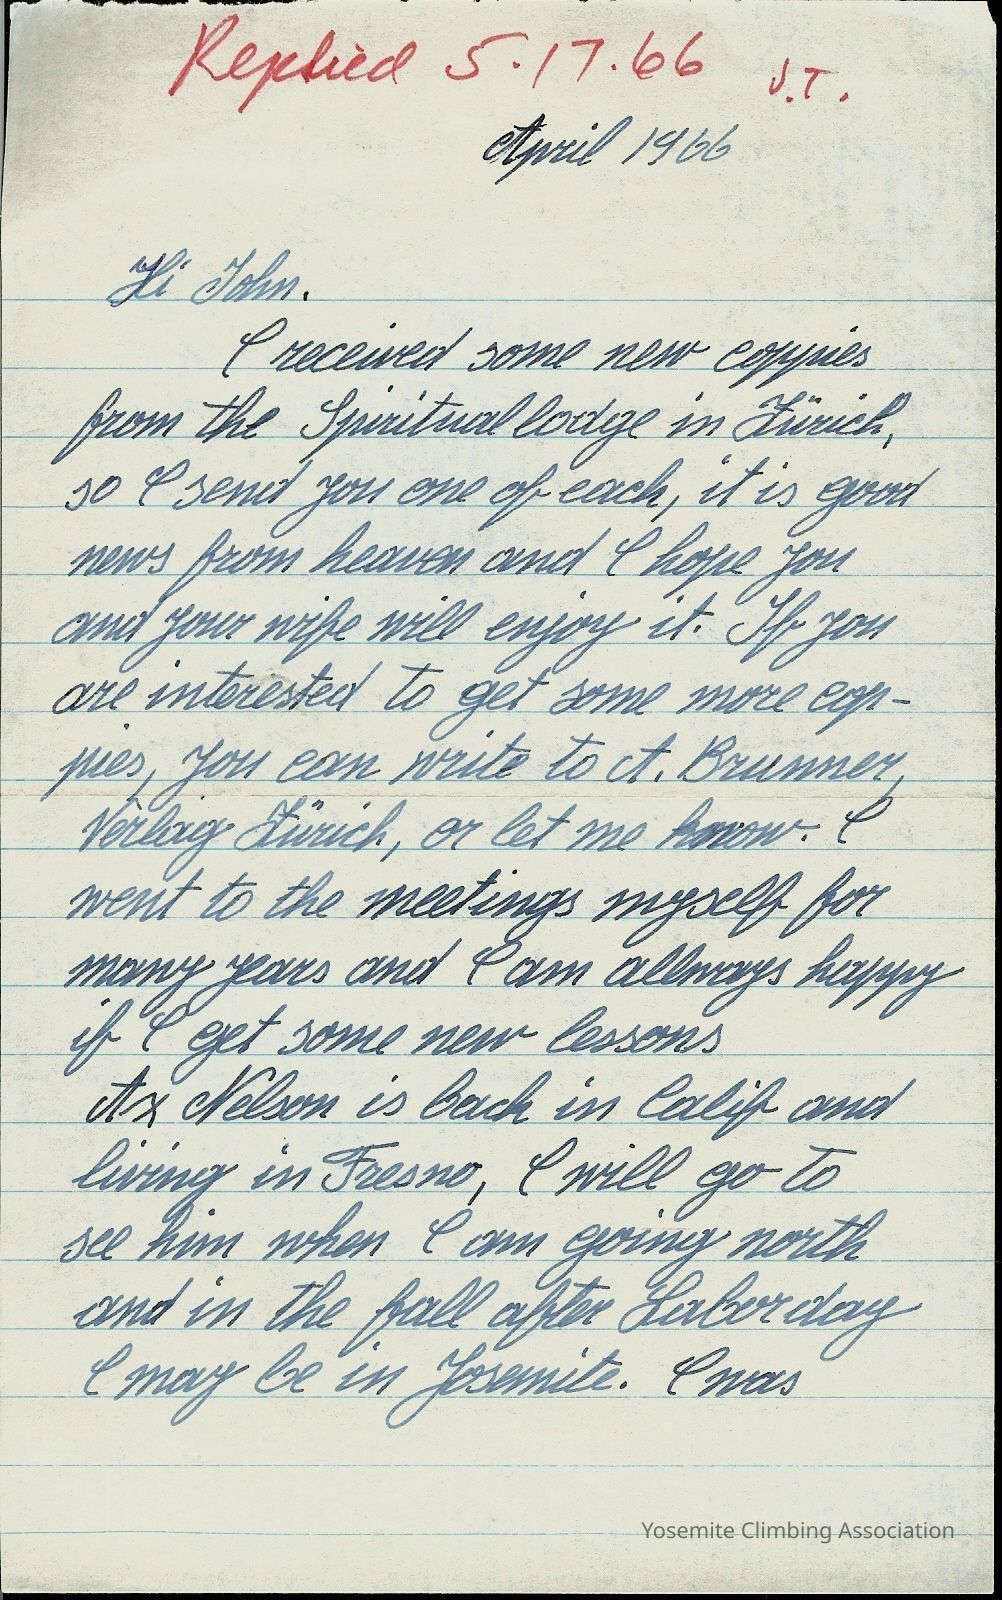 Replied 5.17.66 J.T.
April 1966
Hi John.
I received some new coppies
from the Spiritual lodge in Zürich,
so I send you one of each, it is good
news from heaven and I hope you
and your wife will enjoy it. If you
are interested to get some more cop-
pies, you can write to A. Brunner,
Verlag Zürich, or let me know. I
went to the meetings myself for
many years and I am allways happy
if I get some new lessons
Ax Nelson is back in Calif and
living in Fresno, I will go to
see him when I am going north
and in the fall after Laborday
I may be in Yosemite. I was
Yosemite Climbing Association